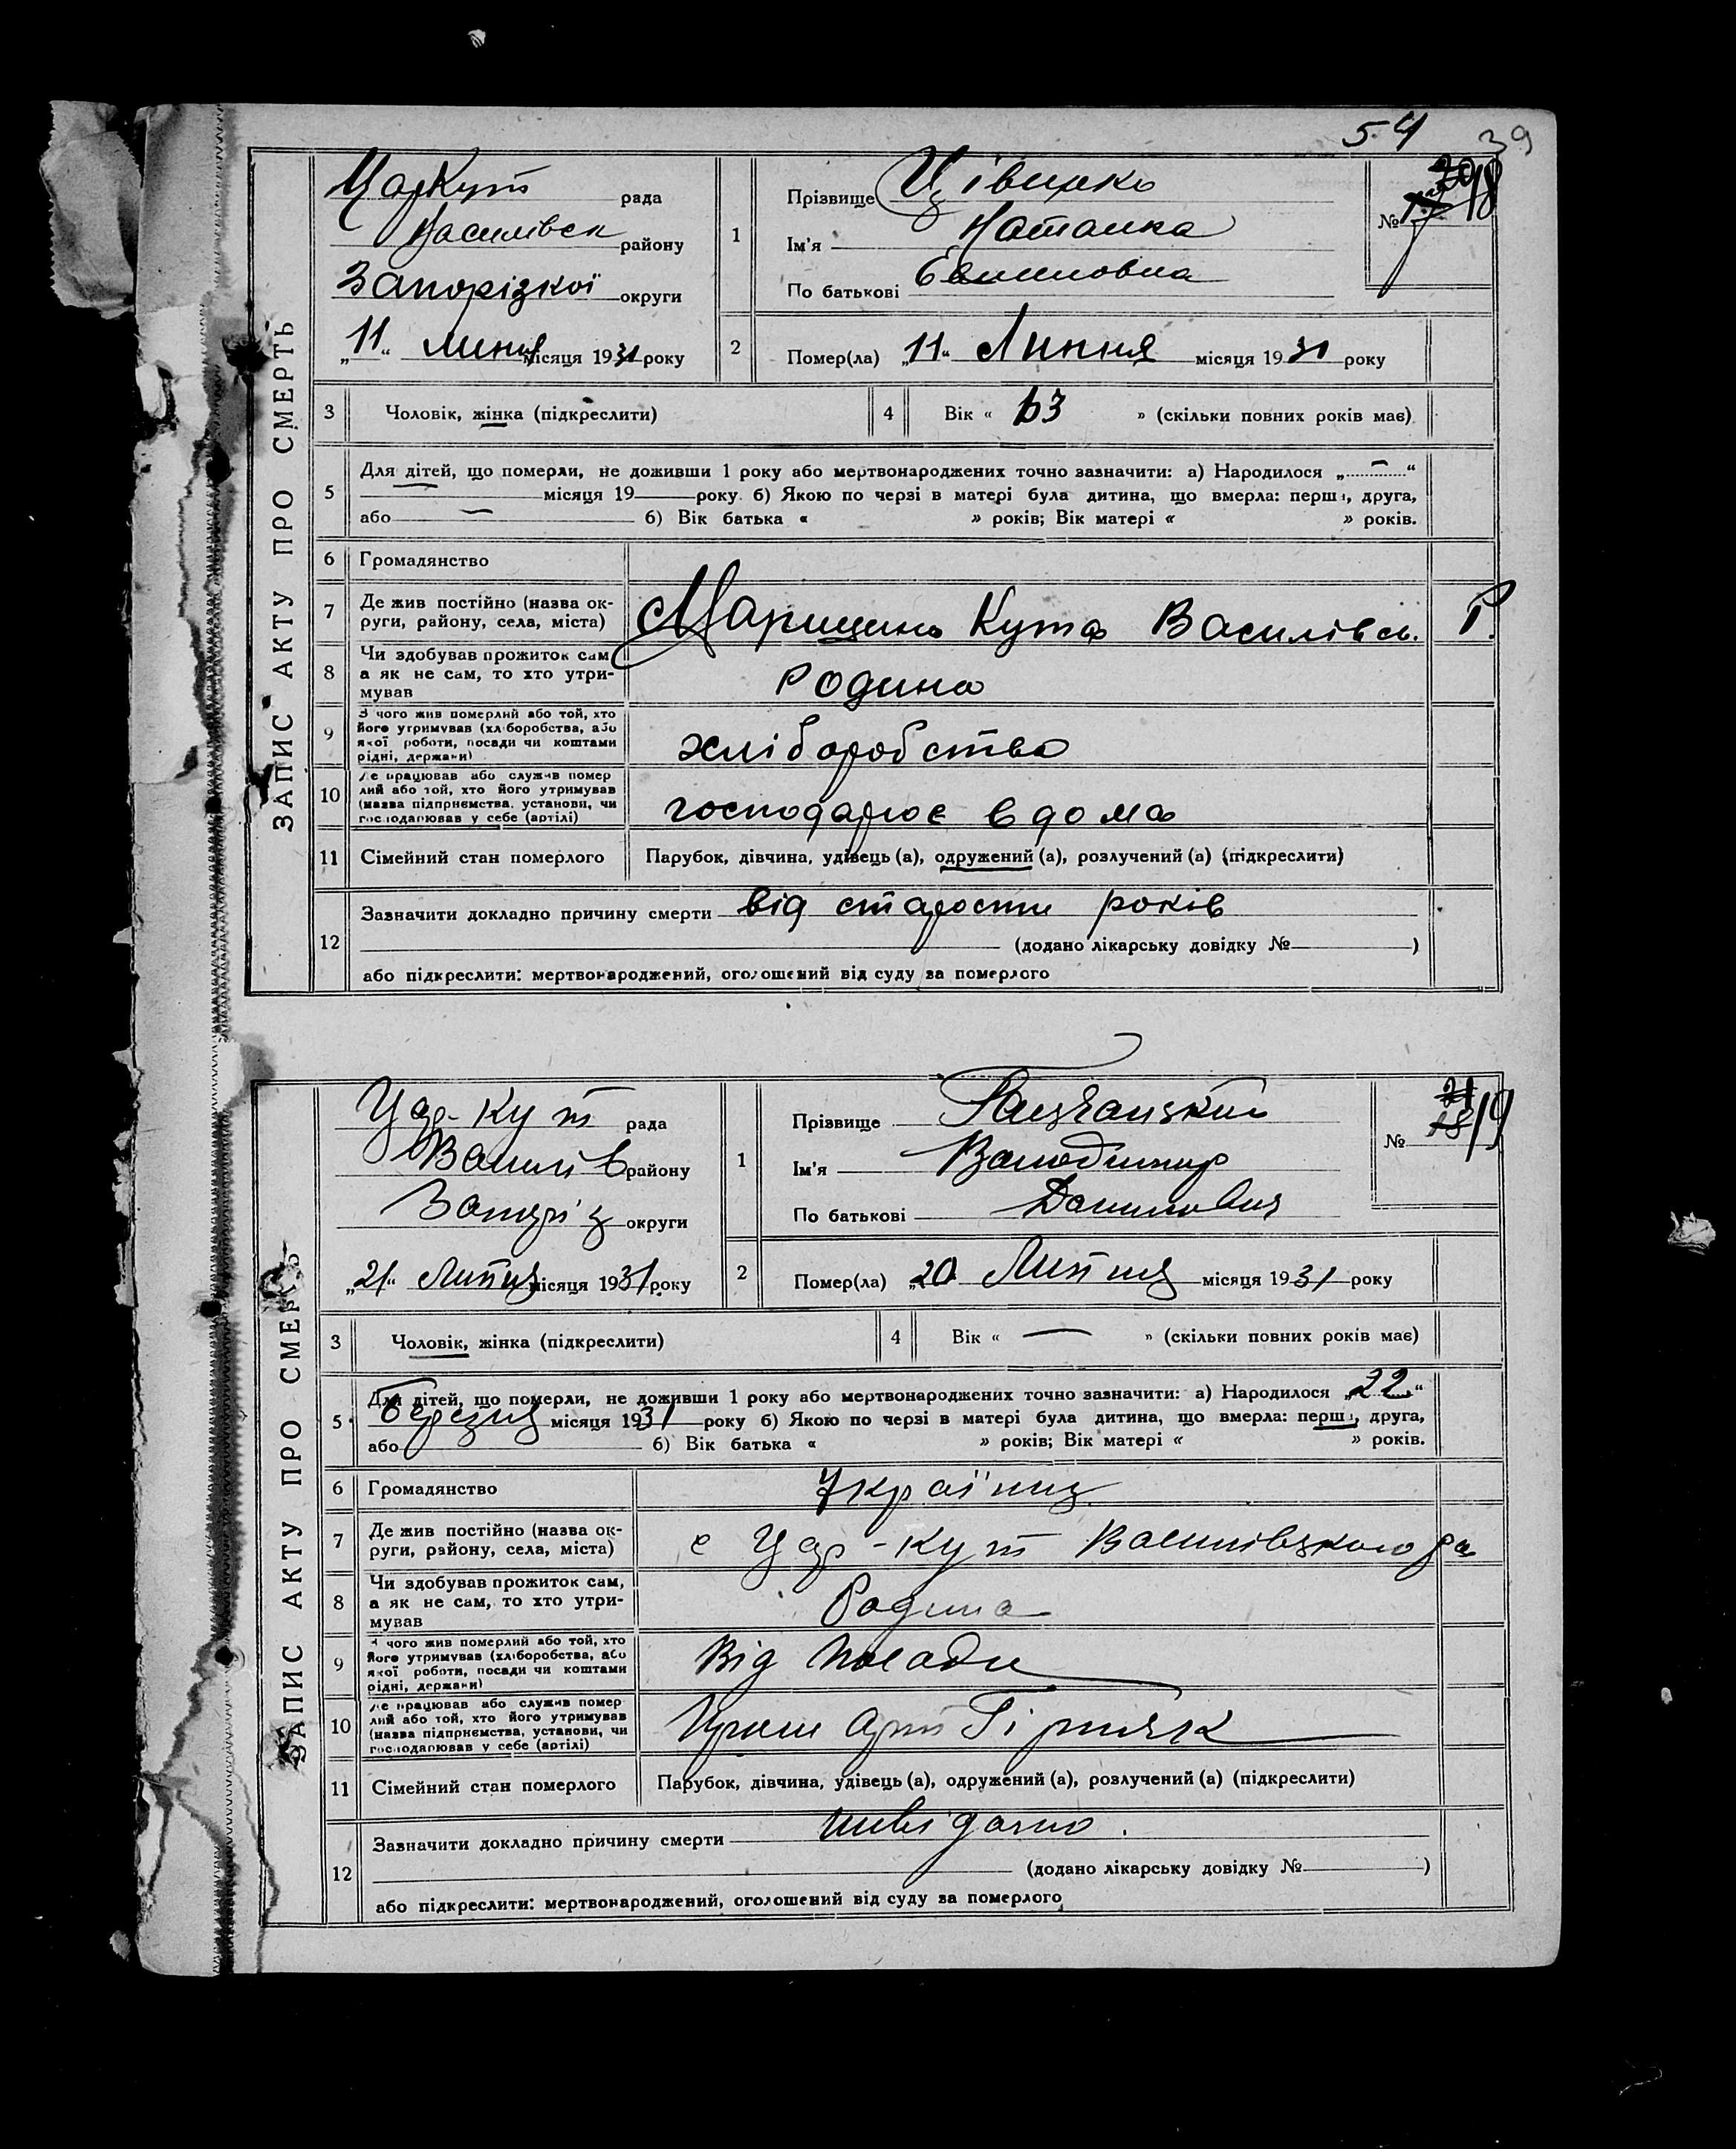 54 39
ЗАПИС АКТУ ПРО СМЕРТЬ
ЦарКут рада
Василівск району
Запорізкої округи
„11“ липня місяця 1931 року
1 Прізвище Цівинко
Ім'я Наталка
По батькові
№ 18
2 Помер(ла) „11“ Липня місяця 1931 року
3 Чоловік, жінка (підкреслити)
4 Вік « 63 » (скільки повних років має)
5 Для дітей, що померли, не доживши 1 року або мертвонароджених точно зазначити: а) Народилося „ — “
— місяця 19 року б) Якою по черзі в матері була дитина, що вмерла: перша, друга,
або — б) Вік батька « » років; Вік матері « » років.
6 Громадянство
7 Де жив постійно (назва ок-
руги, району, села, міста) Царицино Кута Василівсь. Р.
8 Чи здобував прожиток сам,
а як не сам, то хто утри-
мував родина
9 З чого жив померлий або той, хто
його утримував (хліборобства, або
якої роботи, посади чи коштами
рідні, держави) хліборобства
10 Де працював або служив помер
лий або той, хто його утримував
(назва підприємства, установи, чи
господарював у себе (артілі) господарює вдома
11 Сімейний стан померлого Парубок, дівчина, удівець (а), одружений (а), розлучений (а) (підкреслити)
12 Зазначити докладно причину смерти від старости років
(додано лікарську довідку № )
або підкреслити: мертвонароджений, оголошений від суду за померлого
ЗАПИС АКТУ ПРО СМЕРТЬ
Цар-Кут рада
Василів району
Запоріз округи
„21“ Липня місяця 1931 року
1 Прізвище
Ім'я Володимир
По батькові Данилович
№ 19
2 Помер(ла) „20“ Липня місяця 1931 року
3 Чоловік, жінка (підкреслити)
4 Вік « — » (скільки повних років має)
5 Для дітей, що померли, не доживши 1 року або мертвонароджених точно зазначити: а) Народилося „22“
березня місяця 1931 року б) Якою по черзі в матері була дитина, що вмерла: перша, друга,
або б) Вік батька « » років; Вік матері « » років.
6 Громадянство Українц
7 Де жив постійно (назва ок-
руги, району, села, міста) с Цар-Кут Василівського ра
8 Чи здобував прожиток сам,
а як не сам, то хто утри-
мував Родина
9 З чого жив померлий або той, хто
його утримував (хліборобства, або
якої роботи, посади чи коштами
рідні, держави) Від посади
10 Де працював або служив помер
лий або той, хто його утримував
(назва підприємства, установи, чи
господарював у себе (артілі) Арт Гірняк
11 Сімейний стан померлого Парубок, дівчина, удівець (а), одружений (а), розлучений (а) (підкреслити)
12 Зазначити докладно причину смерти невідомо.
(додано лікарську довідку № )
або підкреслити: мертвонароджений, оголошений від суду за померлого